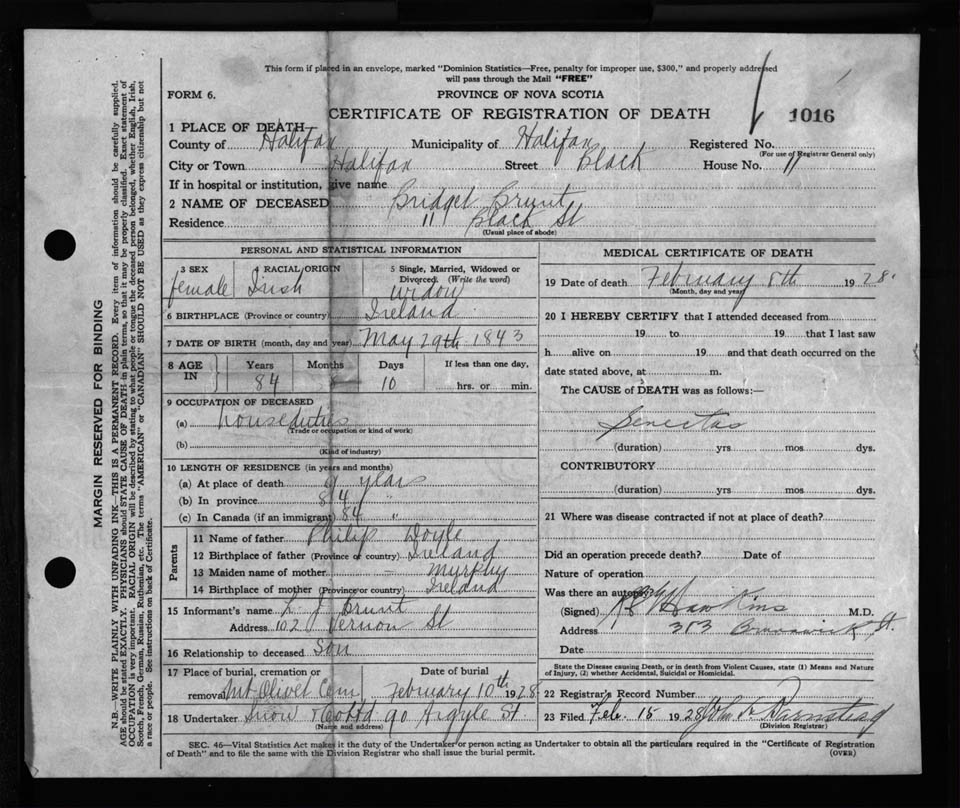 This form if placed in an envelope, marked "Dominion Statistics—Free, penalty for improper use, $300," and properly addressed
will pass through the Mail "FREE"
FORM 6.
PROVINCE OF NOVA SCOTIA
CERTIFICATE OF REGISTRATION OF DEATH
1016
1 PLACE OF DEATH—
County of Halifax Municipality of Halifax Registered No.
(For use of Registrar General only)
City or Town Halifax Street Black House No. 11
If in hospital or institution, give name
2 NAME OF DECEASED Bridget Brunt
Residence 11 Black St
(Usual place of abode)
PERSONAL AND STATISTICAL INFORMATION
3 SEX 4 RACIAL ORIGIN 5 Single, Married, Widowed or
Divorced. (Write the word)
female Irish Widow
6 BIRTHPLACE (Province or country) Ireland
7 DATE OF BIRTH (month, day and year) May 29th 1843
8 AGE IN Years Months Days If less than one day,
84 8 10 hrs. or min.
9 OCCUPATION OF DECEASED
(a) house duties
(Trade or occupation or kind of work)
(b)
(Kind of industry)
10 LENGTH OF RESIDENCE (in years and months)
(a) At place of death years
(b) In province 84 "
(c) In Canada (if an immigrant) 84 "
Parents
11 Name of father Philip Doyle
12 Birthplace of father (Province or country) Ireland
13 Maiden name of mother – Murphy
14 Birthplace of mother (Province or country) Ireland
15 Informant's name J Brunt
Address 102 Vernon St
16 Relationship to deceased Son
17 Place of burial, cremation or Date of burial
removal Mt Olivet Cem February 10th 1928
18 Undertaker Snow & Co Ltd 90 Argyle St.
(Name and address)
MEDICAL CERTIFICATE OF DEATH
19 Date of death February 8th 1928
(Month, day and year)
20 I HEREBY CERTIFY that I attended deceased from
19 to 19 that I last saw
h alive on 19 and that death occurred on the
date stated above, at m.
The CAUSE of DEATH was as follows:—
Senectas
(duration) yrs mos dys.
CONTRIBUTORY
(duration) yrs mos dys.
21 Where was disease contracted if not at place of death?
Did an operation precede death? Date of
Nature of operation
Was there an autopsy?
(Signed) Hawkins M.D.
Address 353 Brunswick St.
Date
State the Disease causing Death, or in death from Violent Causes, state (1) Means and Nature
of Injury, (2) whether Accidental, Suicidal or Homicidal.
22 Registrar's Record Number
23 Filed Feb. 15 1928 John
(Division Registrar)
SEC. 46—Vital Statistics Act makes it the duty of the Undertaker or person acting as Undertaker to obtain all the particulars required in the "Certificate of Registration
of Death" and to file the same with the Division Registrar who shall issue the burial permit. (OVER)
MARGIN RESERVED FOR BINDING
N.B.—WRITE PLAINLY WITH UNFADING INK—THIS IS A PERMANENT RECORD. Every item of information should be carefully supplied.
AGE should be stated EXACTLY. PHYSICIANS should STATE CAUSE OF DEATH in plain terms, so that it may be properly classified. Exact statement of
OCCUPATION is very important. RACIAL ORIGIN will be described by stating to what people or tongue the deceased person belonged, whether English, Irish,
Scotch, French, German, Russian, Ruthenian, etc. The terms "AMERICAN" or "CANADIAN" SHOULD NOT BE USED as they express citizenship but not
a race or people. See instructions on back of Certificate.